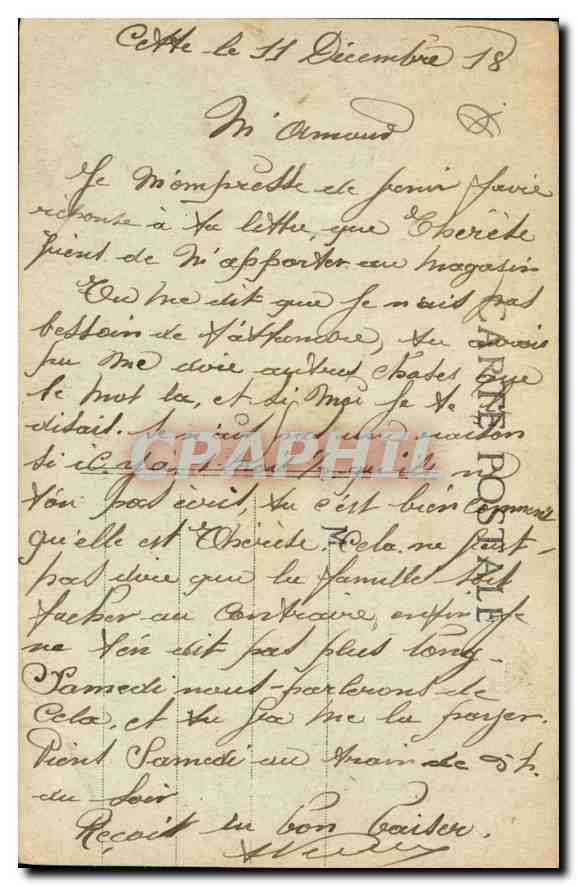 Cette le 11 Décembre 18
M' Armand
Je m'empresse de fenir favie
réponse à ta lettre, que Thérèse
vient de m'apporter au magasin
Tu me dit que je n'ais pas
bessoin de t'attendre, tu avais
pu me dire autres choses que
le mot la, et si moi je te
disait. Je n'ais pas une raison
si ils
t'on pas écris, tu c'est bien comment
qu'elle est Thérèse. Cela ne veut
pas dire que la famille soit
facher au contraire, enfin je
ne t'en dit pas plus long.
Samedi nous parlerons de
Cela, et tu va me la payer.
Vient Samedi au train de 5 h.
du soir
Reçoit un bon baiser.
CARTE POSTALE
M
CPAPHIL